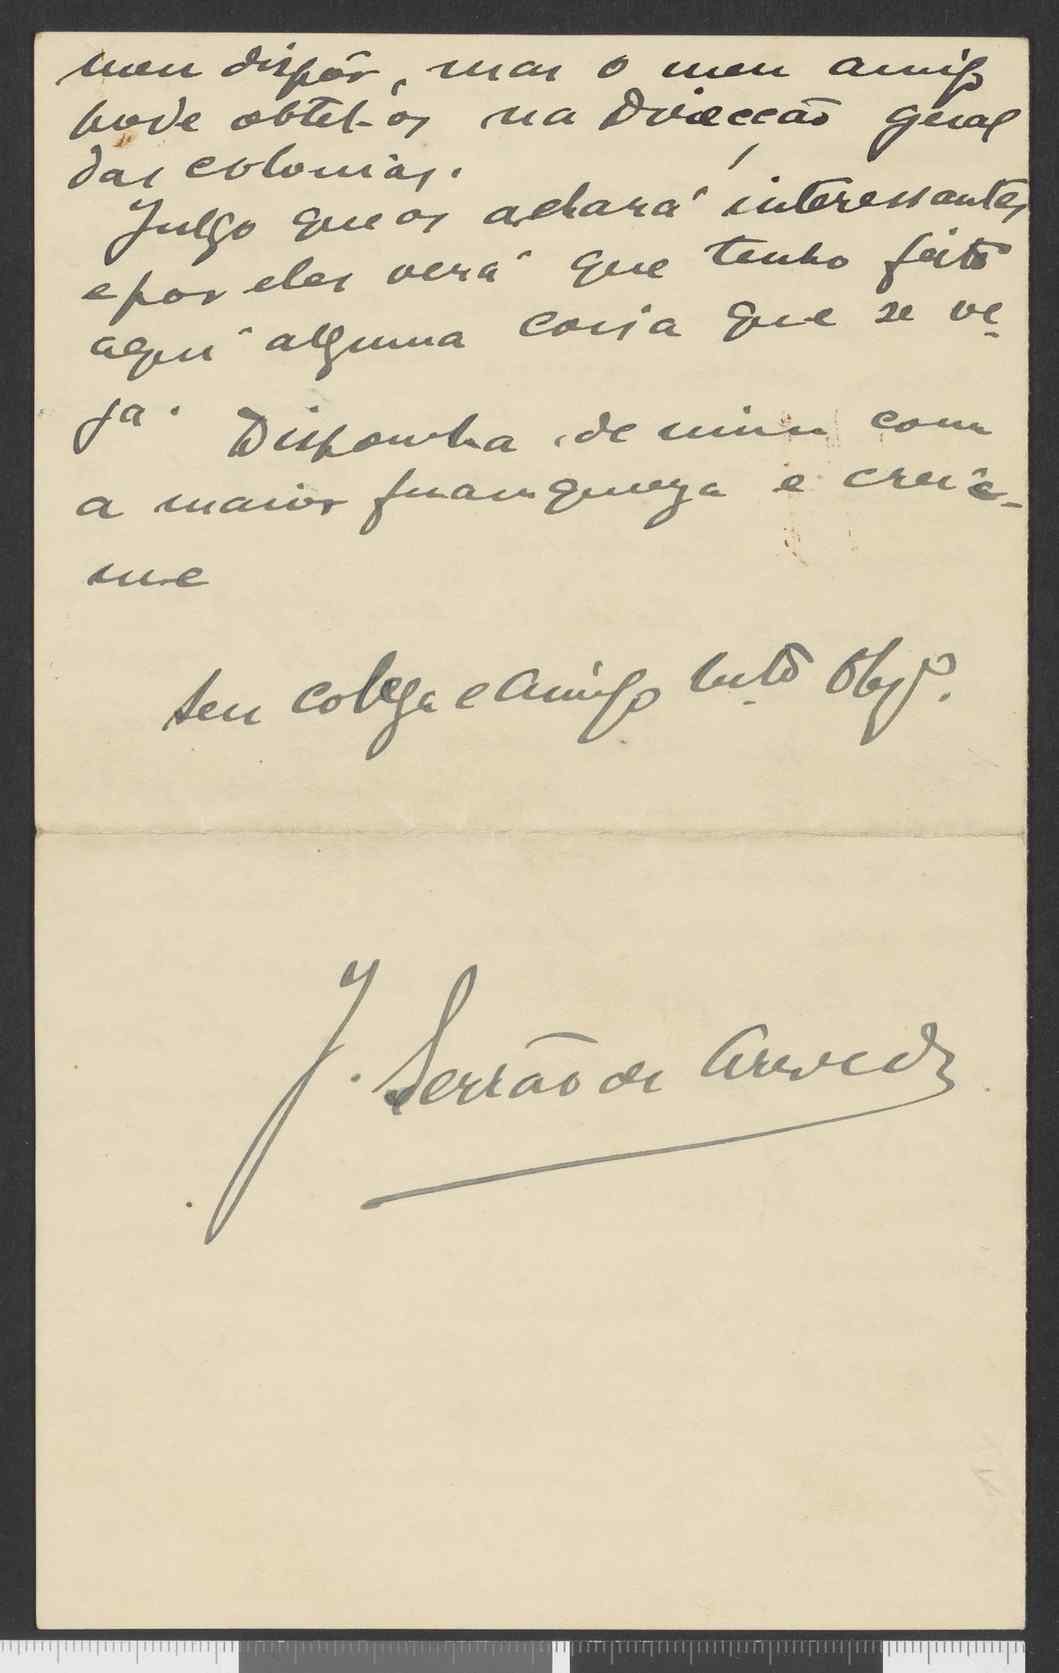 meu dispôr, mas o meu amigo
pode obtel-os na Direcção geral
das colonias.
Julgo que os achará interessantes
e por eles verá que tenho feito
aqui alguma coisa que se ve-
ja.
Disponha de mim com
a maior franqueza e creia-
me
Seu colega e Amigo Mtº Obgº.
J. Serrão de Azevedo